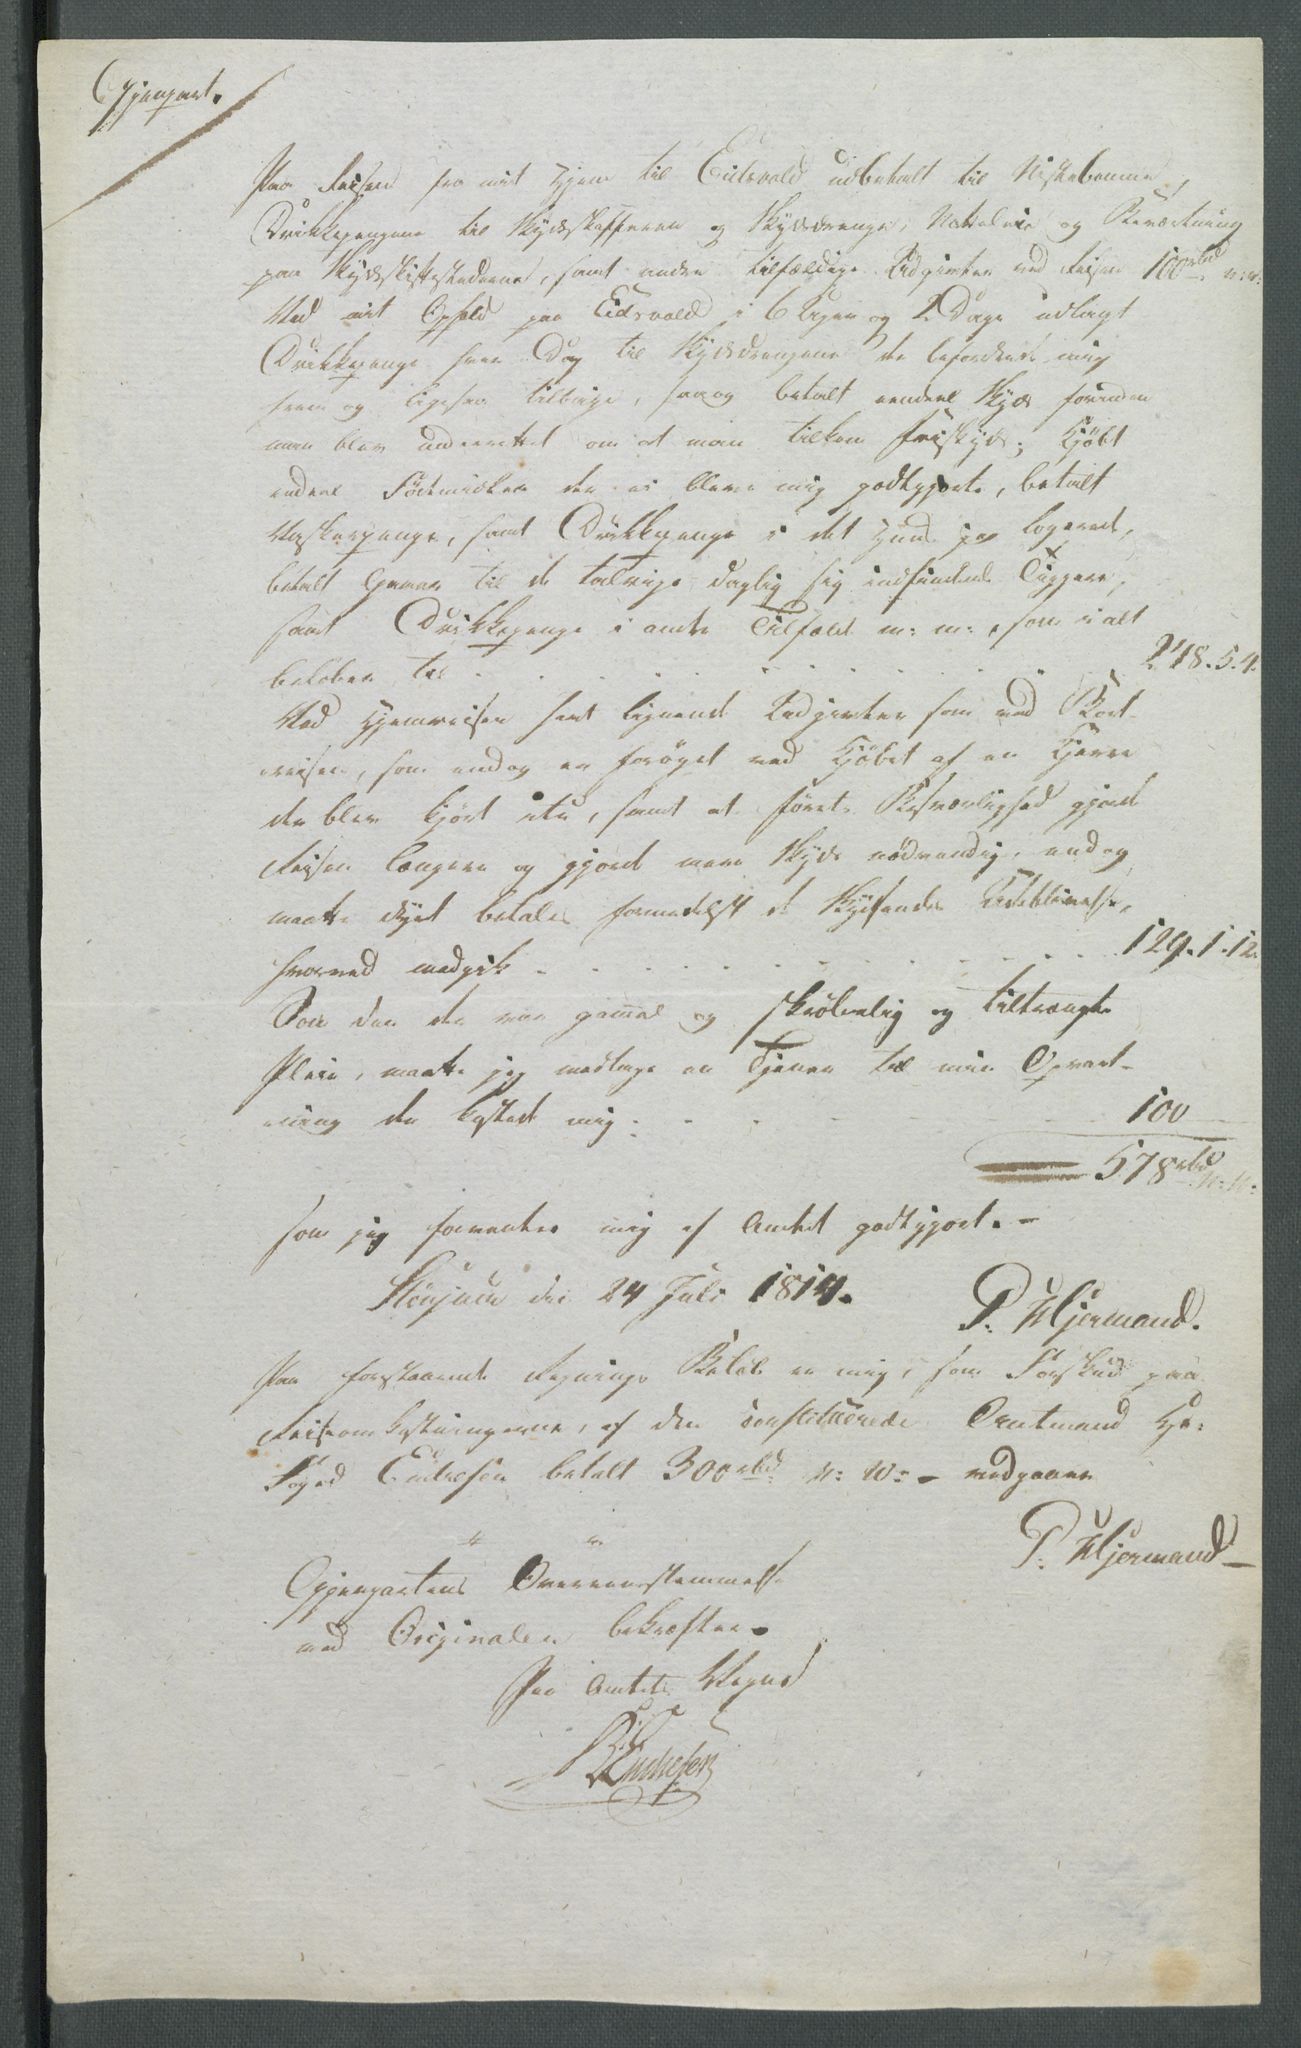 Gjenpart.
Paa Reisen fra mit Hjem til Eidsvold udbetalt til Niste
Drikkepengene til Skydsskafferen og Skydsdrenge, Natteleie og Beværtning
paa Skydsskiftestederne, samt andre tilfældige Udgivter ved Reisen 100 rbd n: v:
Ved mit Ophold paa Eidsvold i 6 Uger og 2 Dage udlagt
Drikkepenge hver Dag til Skydsdrengene der befordrede mig
frem og ligesaa tilbage, saa og betalt endeel Skyds forinden
man blev underrettet om at man tilkom friskyds; Kjöbt
endeel Födemidler der ei bleve mig godtgjorte, betalt
Vaskerpenge, samt Drikkepenge i det Huus jeg logerede,
betalt Gaver til de talrige daglig sig indfindende Tiggere,
samt Drikkepenge i andre Tilfælde m: m:, som i alt
belöber til 248.5.4.
Ved Hjemreisen havt lignende Udgivter som ved Bort-
reisen, som endog er forøget ved Kjöbet af en Kjerre
der blev kjört itu, samt at Förets Besværlighed gjorde
Reisen længere og gjorde mere Skyds nödvendig, endog
maatte dyrt betales formedelst de Skydsendes Udeblivelse,
hvorved medgik 129.1.12.
Som den der var gammel og skröbelig og tiltrængte
Pleie, maatte jeg medtage en Tjener til min Opvart-
ning der kostede mig 100
578 rbd n: v:
som jeg forventer mig af Amtet godtgjort.
den 24 Juli 1814.
P: Hjermand.
Paa forestaaende Regnings Belöb er mig, som Forskud paa
Reiseomkostningerne, af den constituerede Amtmand Hr:
Foged Endresen betalt 300 rbd n: v: - vedgaaer
P: Hjermand
Gjenpartens Overeensstemmelse
med Originalen bekræfter.
Paa Amtets Vegne
Endresen